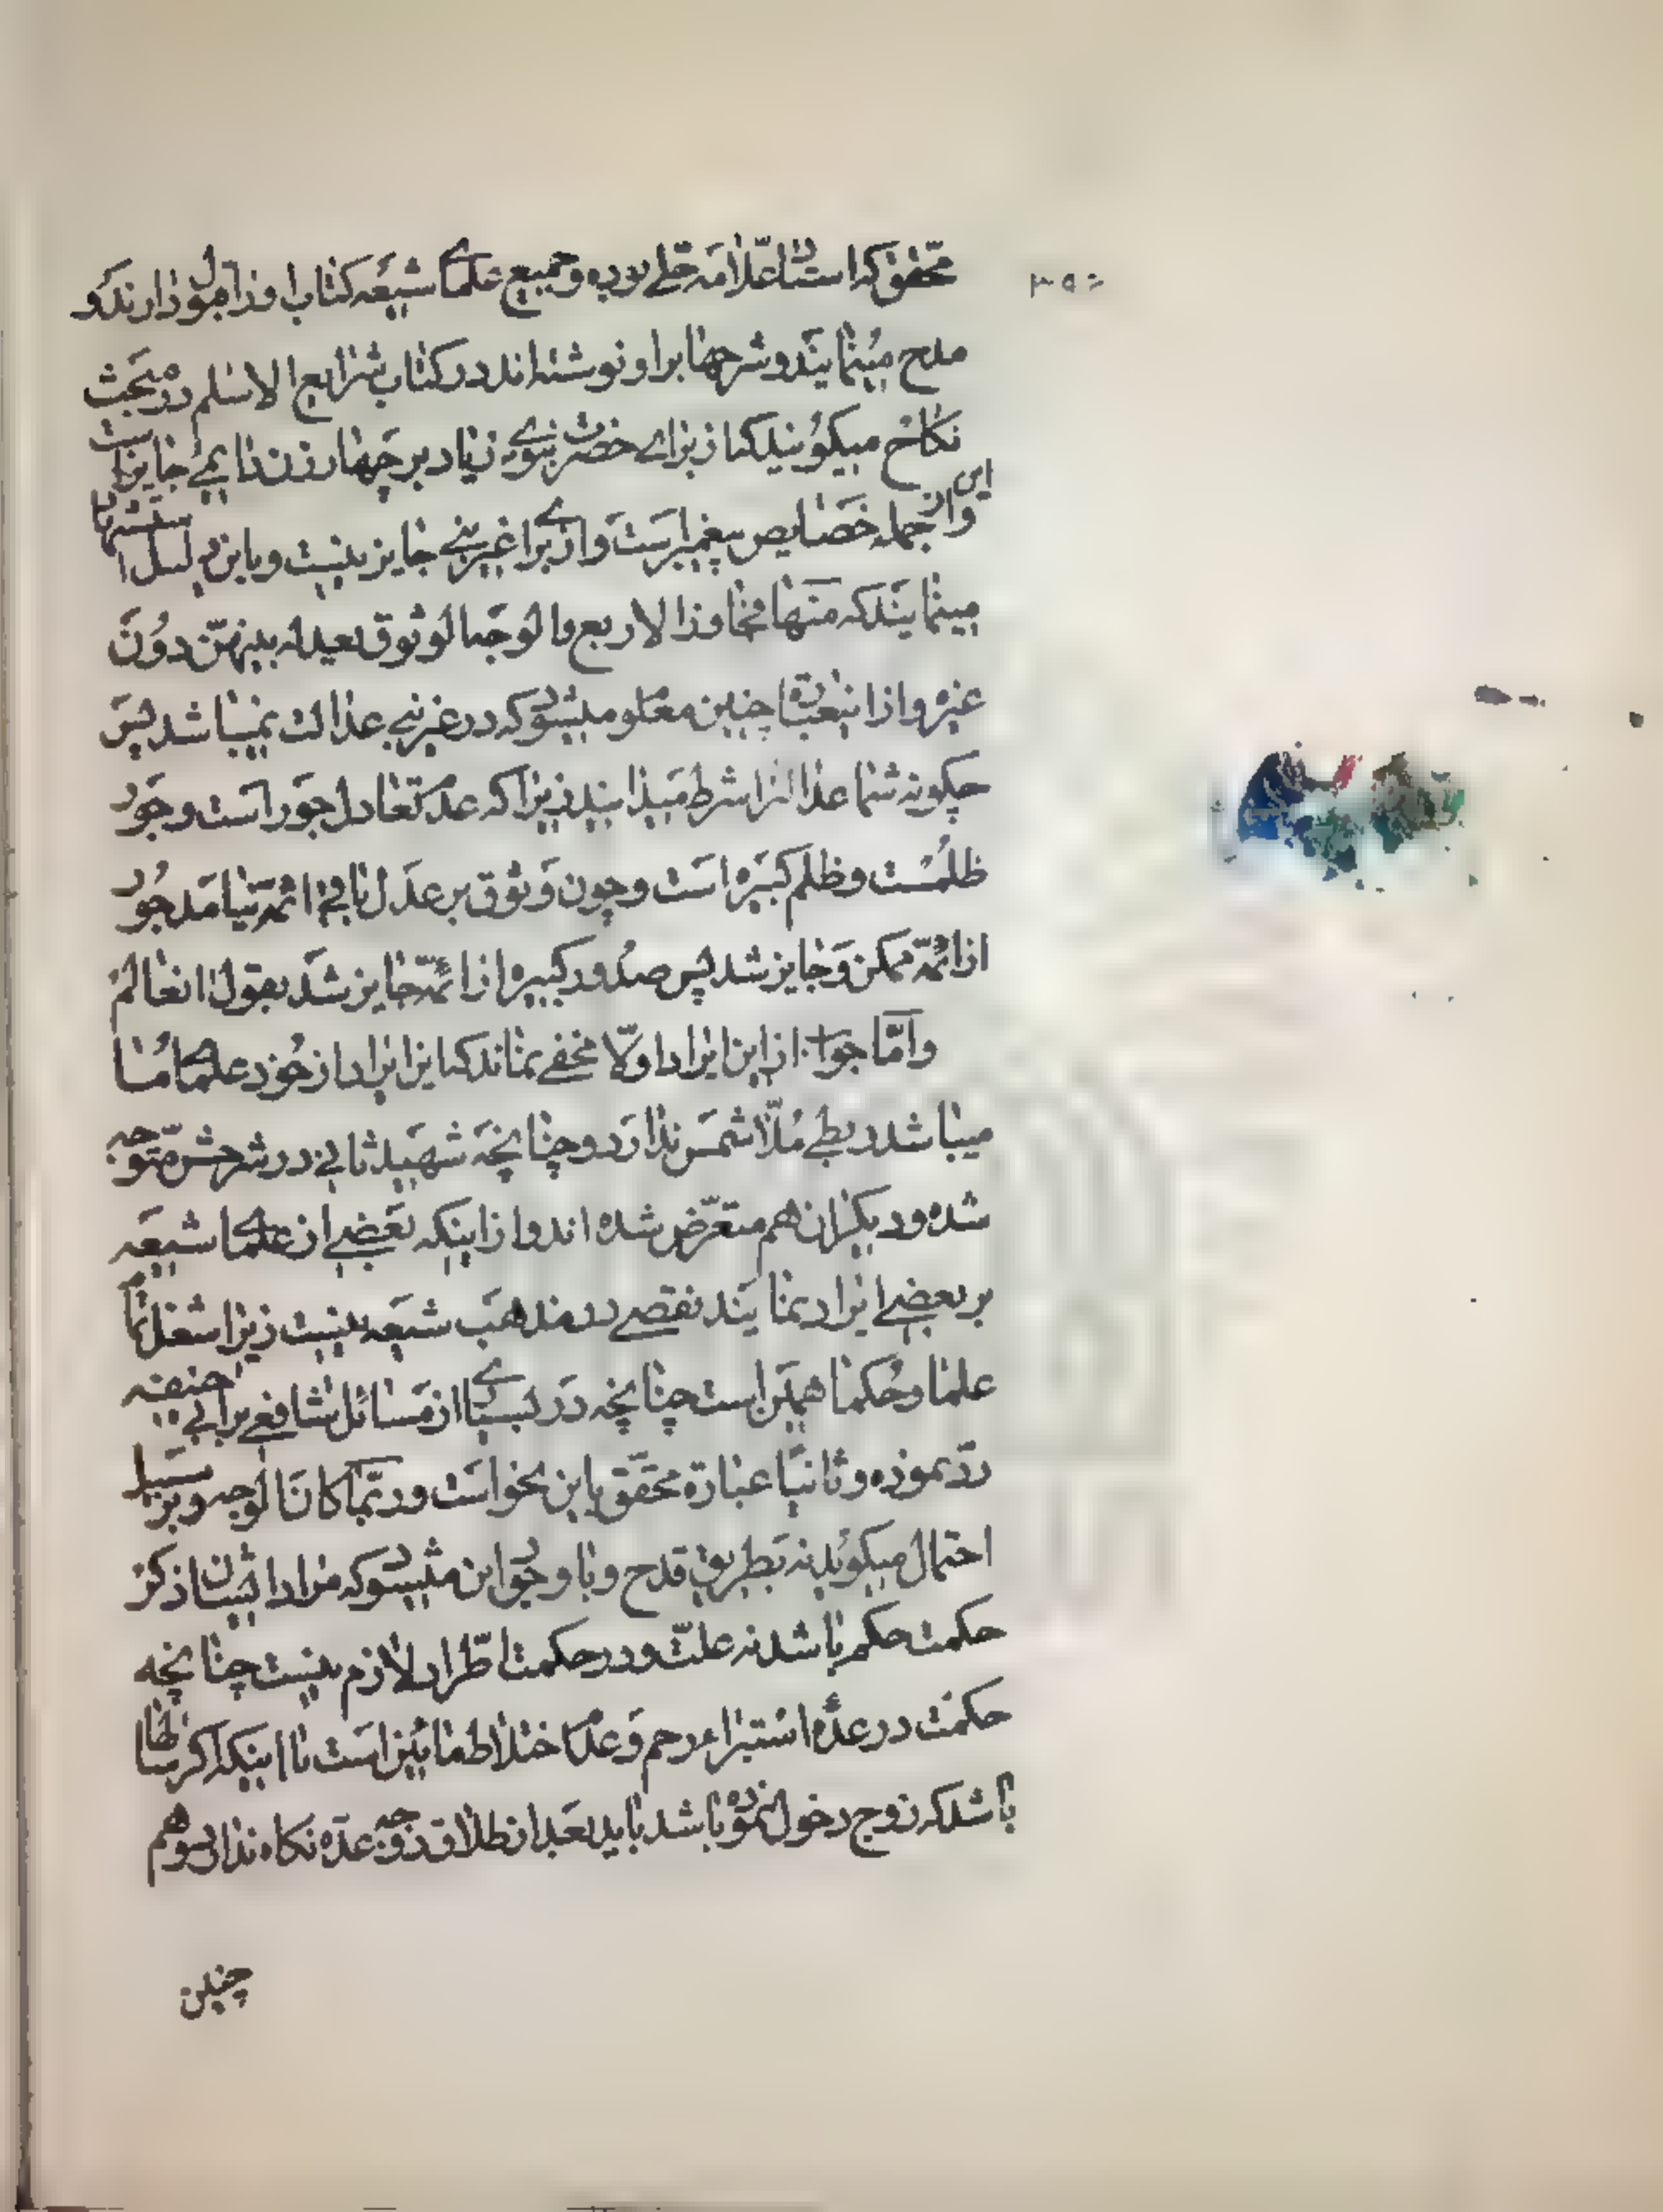 محقق که استاد علّامه حلّی بوده و جمیع علمای شیعه کتاب او را قبول دارند و
مدح مینمایند و شرحها بر او نوشته‌اند در کتاب شرایع الاسلم در مبحث
نکاح میگویند که از برای حضرت نبوی زیاد بر چهار زن دایمی جایز است
و این از جمله خصایص پیغمبر است و از برای غیر نبی جایز نیست و باین دلیل استشهاد
مینمایند که منها تجاوز الاربع والوجه الوثوق بعدله بینهنّ دون
غیره و از این عبارت چنین معلوم میشود که در غیر نبی عدالت نمیباشد پس
چکونه شما عدالت را شرط میدانید زیرا که عدم تعادل جور است و جور
ظلمست و ظلم کبیره است و چون وثوق بر عدل باقی ائمه نیامد جور
از ائمّه ممکن و جایز شد پس صدور کبیره از ائمّه جایز شد بقول انعالم
و امّا جواب از این ایراد اولّا مخفی نماند که این ایراد از خود علمای ما
میباشد ربطی بملّا شمس ندارد و چنانچه شهید ثانی در شرحش متوجّه
شده و دیکران هم متعرّض شده اند و از اینکه بعضی از علمای شیعه
بر بعضی ایراد نمایند نقصی در مذهب شیعه نیست زیرا شغل تمام
علما و حکما همین است چنانچه در بسیاری از مسائل شافعی بر ابی حنیفه
ردّ نموده و ثانیا عبارة محقّق باین نحو است و ربّما کان الوجه و بر سبیل
احتمال میکوید نه بطریق قدح و با وجود این میشود که مراد ایشان ذکر
حکمت حکم باشد نه علّت و در حکمت اطّراد لازم نیست چنانچه
حکمت در عدّه استبراء رحم و عدم اختلاط مایین است با اینکه اکر سالها
باشد که زوج دخول ننموده باشد باید بعد از طلاق زوجه عدّه نکاه ندارد سوم
چنین